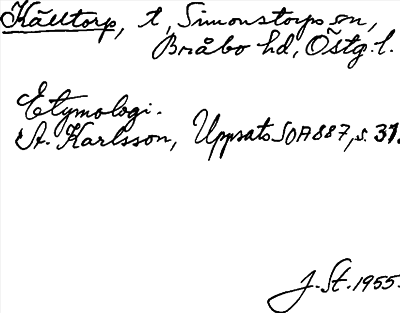 Källtorp, t, Simonstorps sn,
Bråbo hd, Östg. l.
Etymologi.
A. Karlsson, Uppsats SOA 887, s. 31.
J. St. 1955.